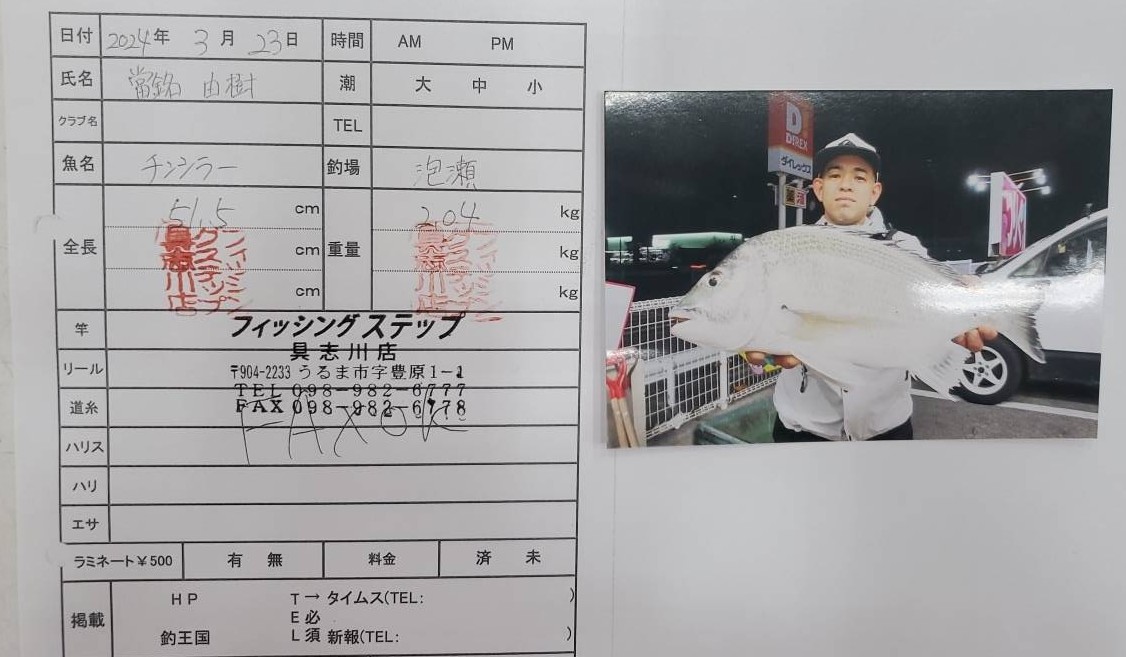 日付 2024年 3月 23日 時間 AM PM
氏名 常銘 由樹 潮 大 中 小
クラブ名 TEL
魚名 チンシラー 釣場 泡瀬
全長 51.5 cm 重量 2.04 kg
cm kg
cm kg
フィッシングステップ
具志川店
竿
フィッシングステップ
具志川店
リール
〒904-2233 うるま市字豊原1-1
TEL 098-982-6777
道糸
FAX 098-982-6778
FAXOK
ハリス
ハリ
エサ
ラミネート¥500 有 無 料金 済 未
掲載 HP T→タイムス(TEL: )
E必
釣王国 L須 新報(TEL: )
D
DiREX
ダイレックス